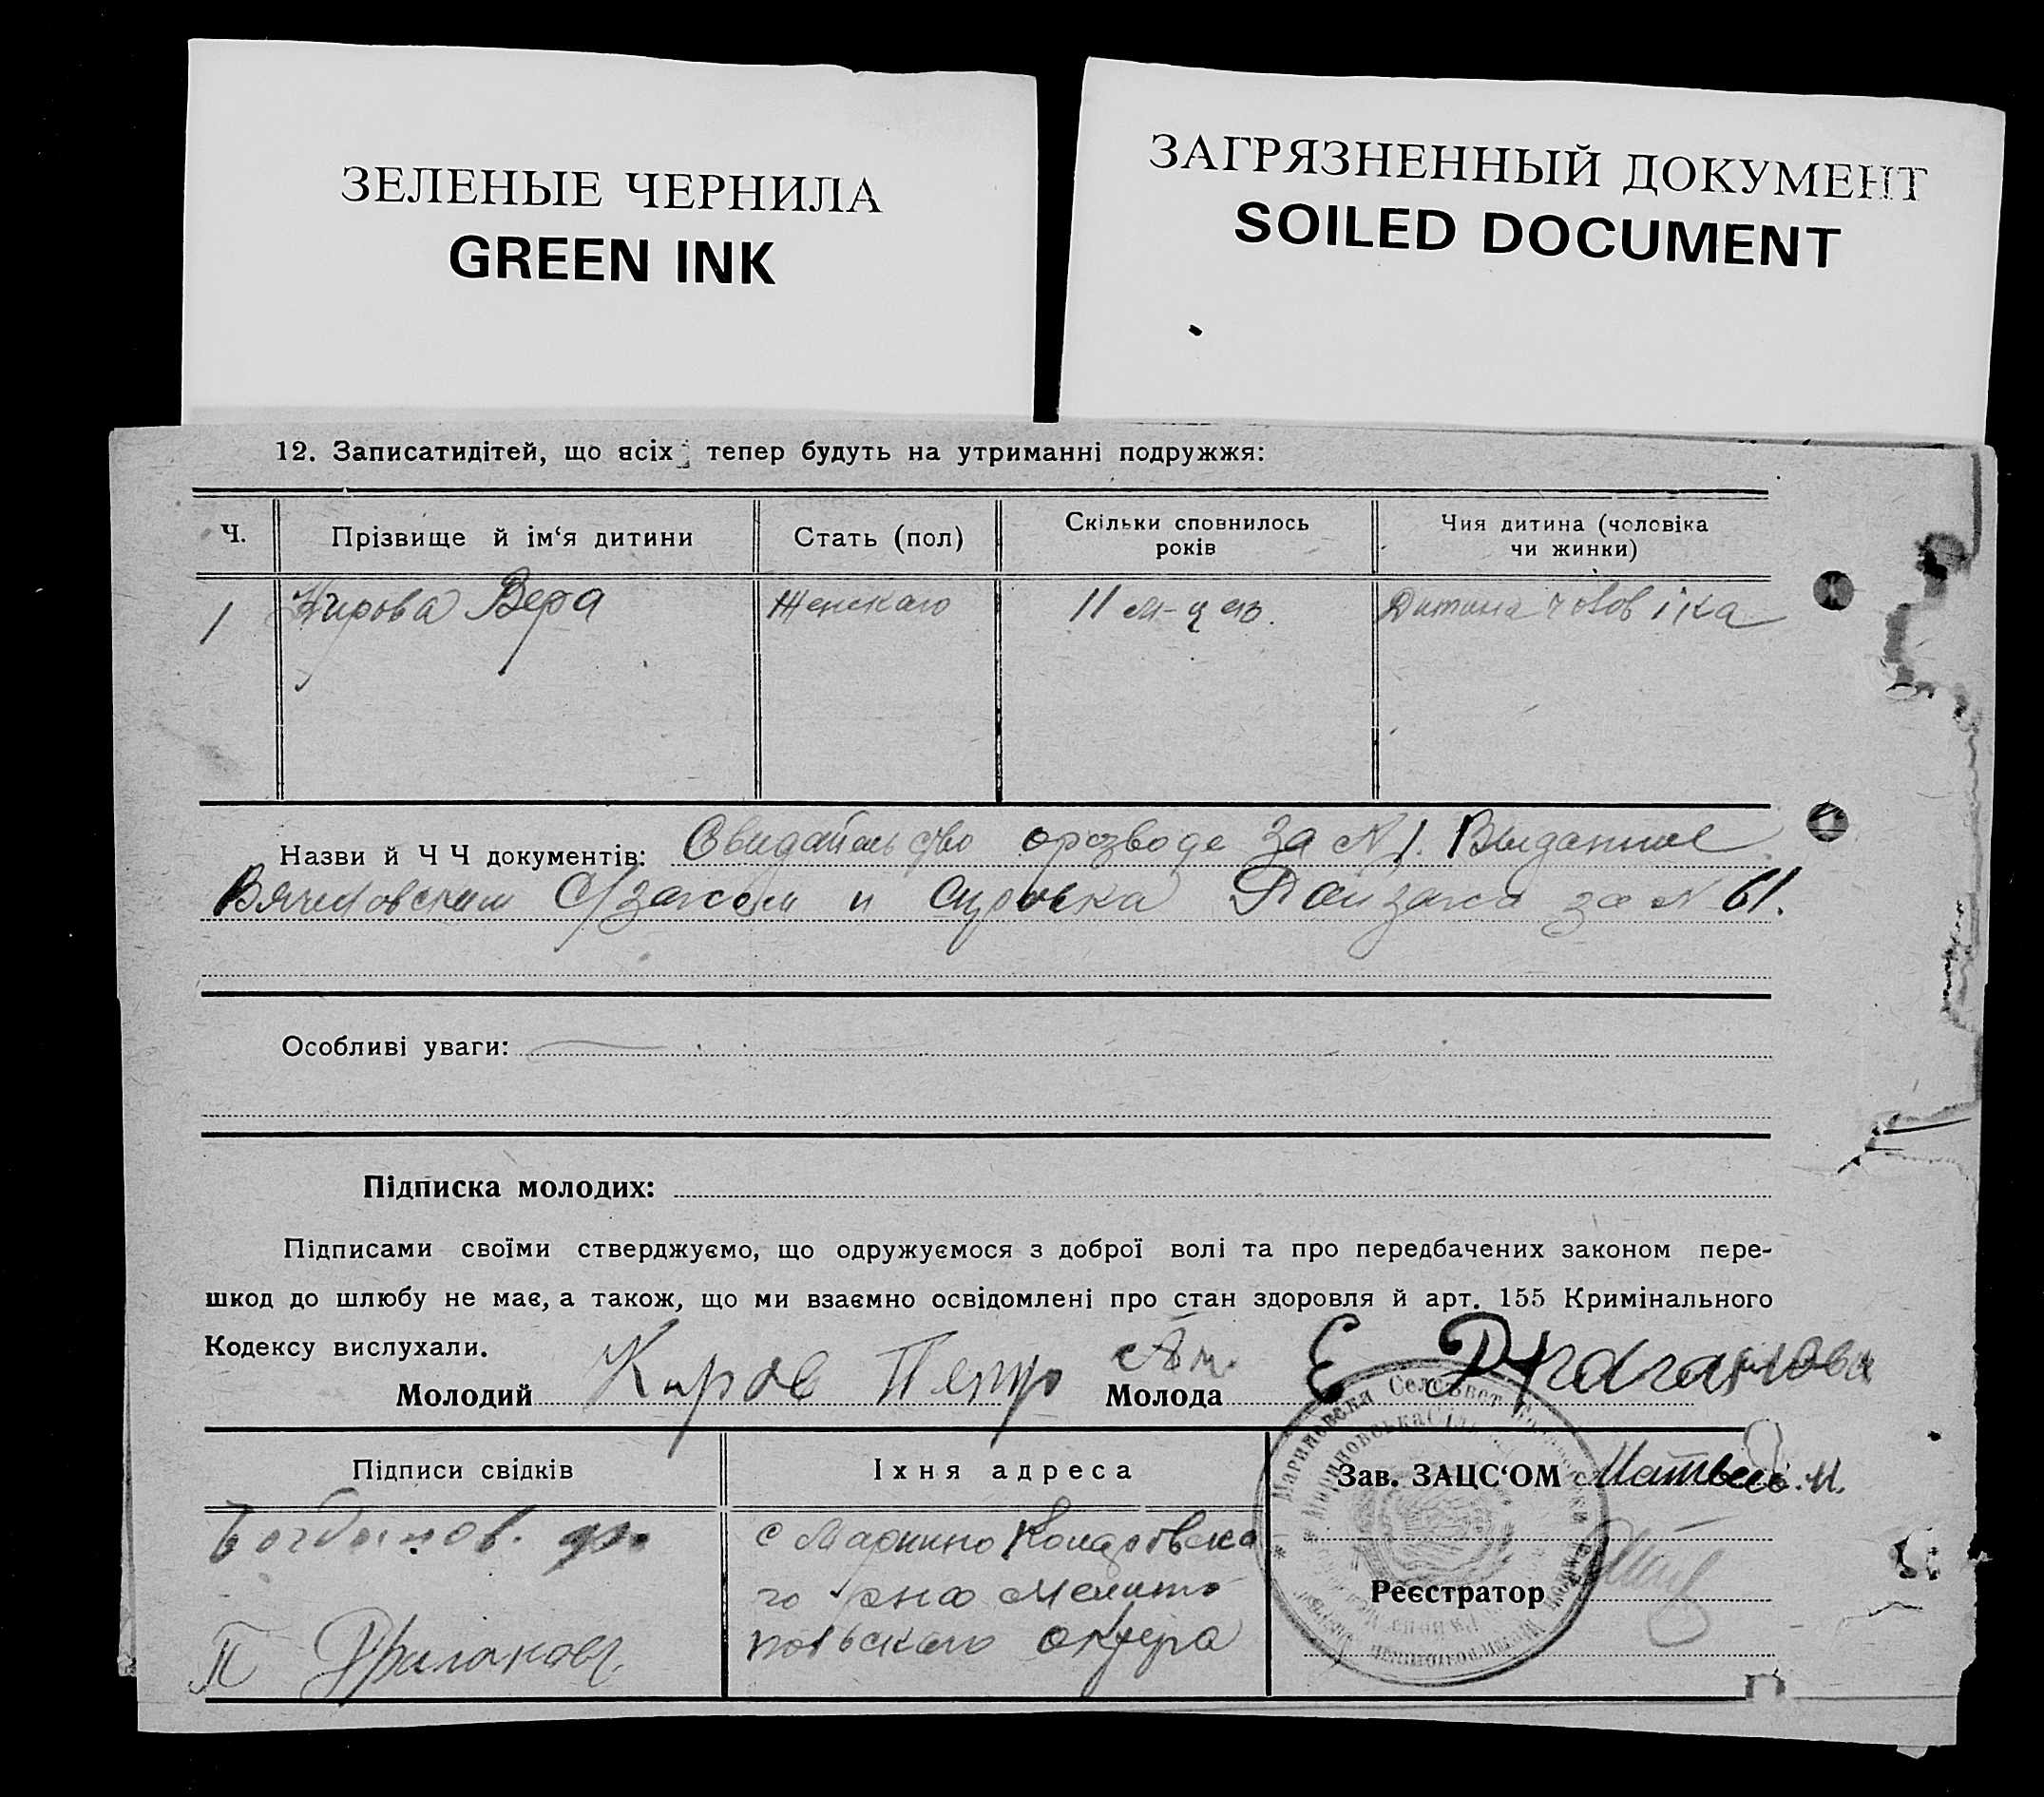 ЗЕЛЕНЫЕ ЧЕРНИЛА
GREEN INK
ЗАГРЯЗНЕННЫЙ ДОКУМЕНТ
SOILED DOCUMENT
12. Записатидітей, що всіх тепер будуть на утриманні подружжя:
Ч. Прізвище й ім‘я дитини Стать (пол) Скільки сповнилось років Чия дитина (чоловіка чи жинки)
1 Кирова Вера Женскаго 11 м-цев. Дитина чоловіка
Назви й Ч Ч документів: Свидательство о розводе за №1. Выданние
С/загсом и за № 61.
Особливі уваги:
Підписка молодих:
Підписами своїми стверджуємо, що одружуємося з доброї волі та про передбачених законом пере-
шкод до шлюбу не має, а також, що ми взаємно освідомлені про стан здоровля й арт. 155 Кримінального
Кодексу вислухали.
Молодий Киров Петр Молода Е Драганова
Підписи свідків Їхня адреса Зав. ЗАЦС‘ОМ
с Марино
го р-на Мелито
польскаго округа
Реєстратор
П Драганов